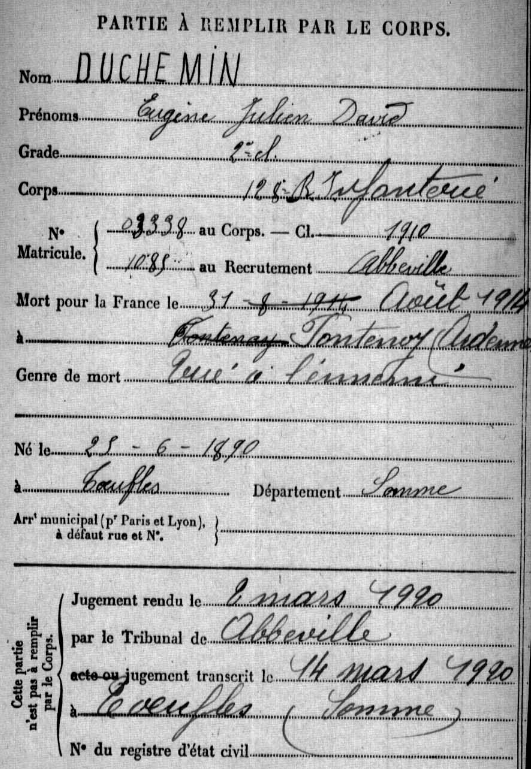 PARTIE À REMPLIR PAR LE CORPS.
Nom DUCHEMIN
Prénoms Eugène Julien David
Grade 2e cl.
Corps 128e R Infanterie
N° Matricule. { 03338 au Corps. — Cl. 1910
1085 au Recrutement Abbeville
Mort pour la France le 31 - 8 - 1914 Août 1914
à Fontenay Fontenoy (Ardenne
Genre de mort Tué à l'ennemi
Né le 25 - 6 - 1890
à Toeufles Département Somme
Arrt municipal (pr Paris et Lyon), à défaut rue et N°. }
Cette partie n'est pas à remplir par le Corps.
Jugement rendu le 2 mars 1920
par le Tribunal de Abbeville
acte ou jugement transcrit le 14 mars 1920
à Toeufles (Somme)
N° du registre d'état civil